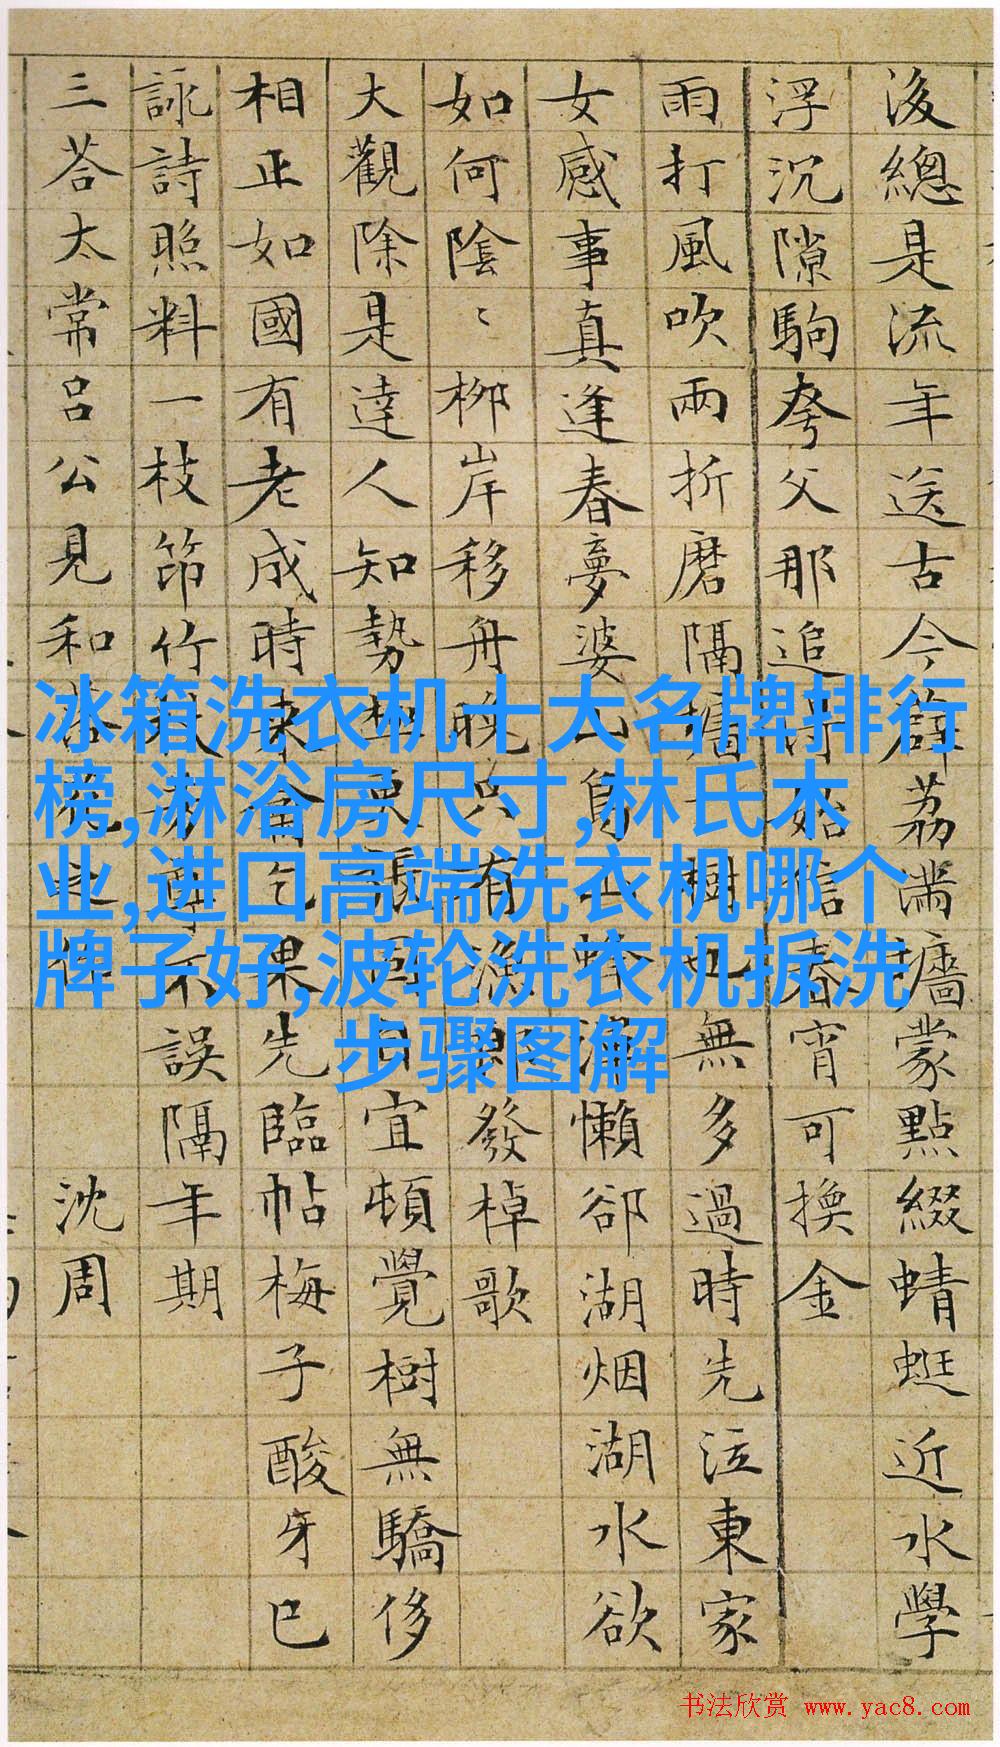 後總是流年送古今薜荔滿牆蒙點綴蜻蜓近水學
浮沉隙駒夸父那追得始信春宵可換金
雨打風吹兩折磨隔牆一樹也無多過時先泣東家
女感事真逢春夢婆身蜂懶卻湖烟湖水欲
如何陰〻柳岸移舟晚只有漁郎發棹歌
大觀除是達人知勢宜頓覺樹無驕侈
相正如國有老成時果先臨帖梅子酸牙已
詠詩照料一枝笻竹不誤隔年期
三荅太常呂公見和荅
沈周
冰箱洗衣机十大名牌排行
榜,淋浴房尺寸,林氏木
业,进口高端洗衣机哪个
牌子好,波轮洗衣机拆洗
步骤图解
书法欣赏 www.yac8.com